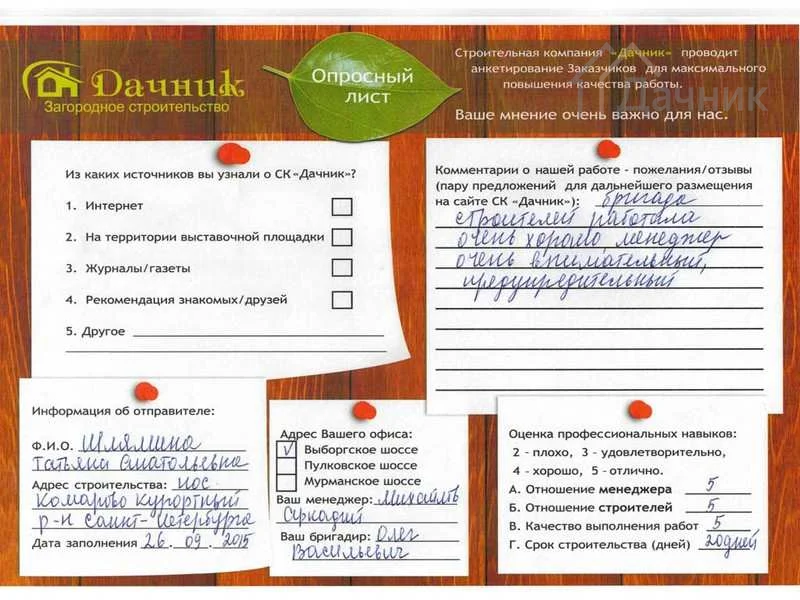 Дачник
Загородное строительство
Опросный
лист
Строительная компания «Дачник» проводит
анкетирование Заказчиков для максимального
повышения качества работы.
Дачник
Ваше мнение очень важно для нас.
Из каких источников вы узнали о СК «Дачник»?
1. Интернет
2. На территории выставочной площадки
3. Журналы/газеты
4. Рекомендация знакомых/друзей
5. Другое
Комментарии о нашей работе - пожелания/отзывы
(пару предложений для дальнейшего размещения
на сайте СК «Дачник»): бригада
строителей работала
очень хорошо, менеджер
очень внимательный,
предупредительный
Информация об отправителе:
Ф.И.О. Шлямина
Татьяна Анатольевна
Адрес строительства: пос.
Комарово Курортный
р-н Санкт-Петербурга
Дата заполнения 26. 09. 2015
Адрес Вашего офиса:
V Выборгское шоссе
Пулковское шоссе
Мурманское шоссе
Ваш менеджер: Михайлов
Аркадий
Ваш бригадир: Олег
Васильевич
Оценка профессиональных навыков:
2 - плохо, 3 - удовлетворительно,
4 - хорошо, 5 - отлично.
А. Отношение менеджера 5
Б. Отношение строителей 5
В. Качество выполнения работ 5
Г. Срок строительства (дней) 20 дней